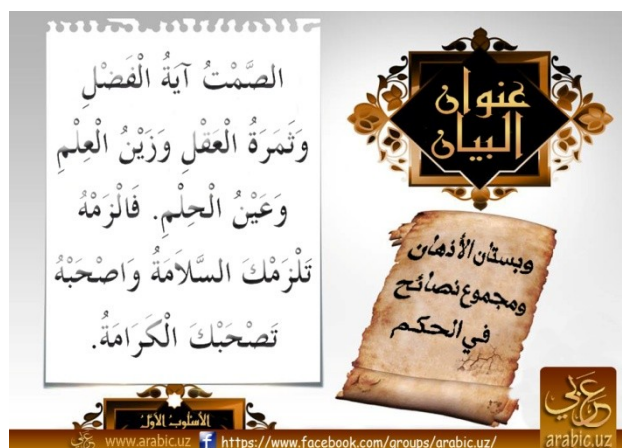 الصَّمْتُ آيَةُ الْفَضْلِ
وَثَمَرَةُ الْعَقْلِ وَزَيْنُ الْعِلْمِ
وَعَيْنُ الْحِلْمِ. فَالْزَمْهُ
تَلْزَمْكَ السَّلاَمَةُ وَاصْحَبْهُ
تَصْحَبْكَ الْكَرَامَةُ.
عنوان
البيان
وبستان الأذهان
ومجموع نصائح
في الحكم
الأسلوب الأول
عربي www.arabic.uz f https://www.facebook.com/groups/arabic.uz/
عربي
arabic.uz